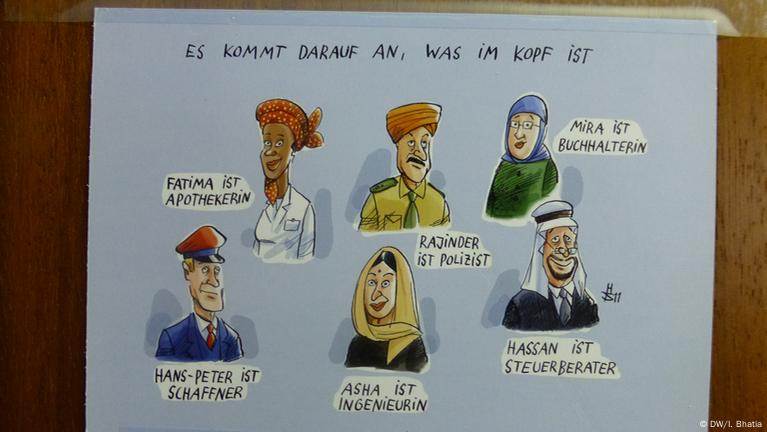 ES KOMMT DARAUF AN, WAS IM KOPF IST
MIRA IST
BUCHHALTERIN
FATIMA IST
APOTHEKERIN
RAJINDER
IST POLIZIST
HASSAN IST
STEUERBERATER
HANS-PETER IST
SCHAFFNER
ASHA IST
INGENIEURIN
© DW/I. Bhatia